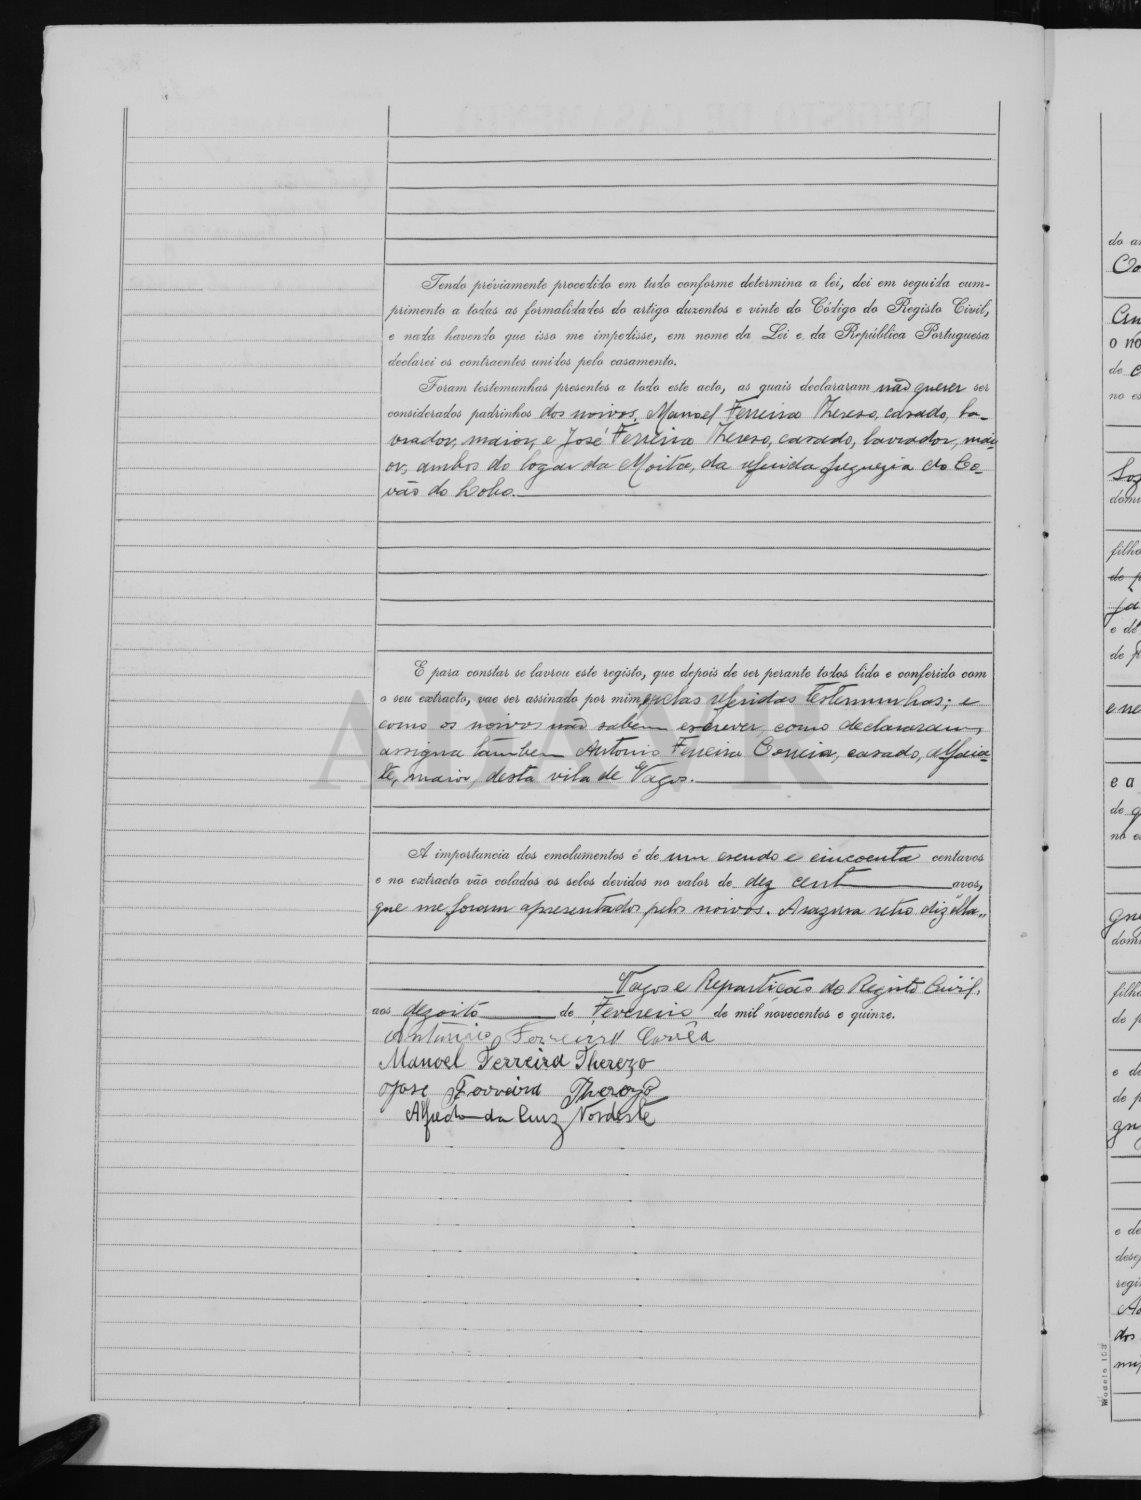 Tendo préviamente procedido em tudo conforme determina a lei, dei em seguida cum-
primento a todas as formalidades do artigo duzentos e vinte do Código do Registo Civil,
e nada havendo que isso me impedisse, em nome da Lei e da República Portuguesa
declarei os contraentes unidos pelo casamento.
Foram testemunhas presentes a todo este acto, as quais declararam não querer ser
considerados padrinhos dos noivos, Manoel Ferreira Thereso, casado, la-
vrador, maior, e José Ferreira Thereso, casado, lavrador, mai-
or, ambos do logar da Moita, da referida freguezia do Co-
vão do Lobo.
E para constar se lavrou este registo, que depois de ser perante todos lido e conferido com
o seu extracto, vae ser assinado por mim, pelas referidas testemunhas; e
como os noivos não sabem escrever, como declararam,
assigna tambem Antonio Ferreira Correia, casado, alfaia-
te, maior, desta vila de Vagos.
ADAVR
A importancia dos emolumentos é de um escudo e cincoenta centavos
e no extracto vão colados os selos devidos no valor de dez cent avos,
que me foram apresentados pelos noivos. A razura retro diz
Vagos e Repartição do Registo Civil,
aos dezoito de Fevereiro de mil novecentos e quinze.
Antonio Ferreira Corrêa
Manoel Ferreira Therezo
José Ferreira Therezo
Alfredo da Cruz Nordeste
Modelo 103